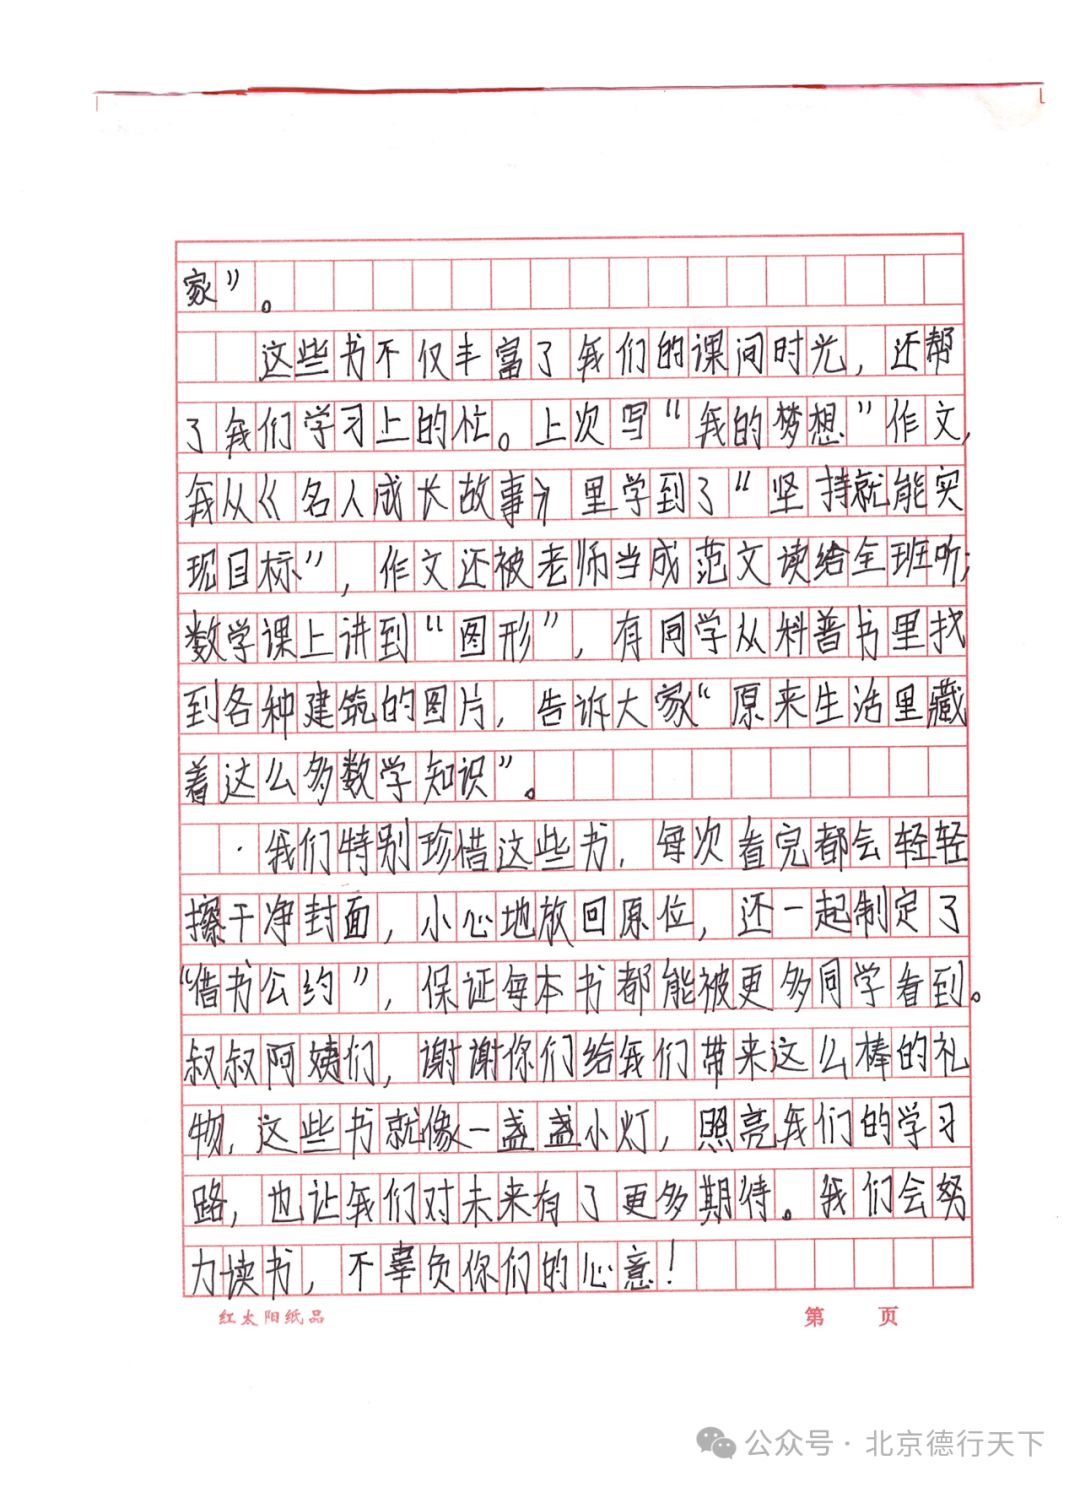 家”。
这些书不仅丰富了我们的课间时光，还帮
了我们学习上的忙。上次写“我的梦想”作文，
我从《名人成长故事》里学到了“坚持就能实
现目标”，作文还被老师当成范文读给全班听；
数学课上讲到“图形”，有同学从科普书里找
到各种建筑的图片，告诉大家“原来生活里藏
着这么多数学知识”。
我们特别珍惜这些书，每次看完都会轻轻
擦干净封面，小心地放回原位，还一起制定了
“借书公约”，保证每本书都能被更多同学看到。
叔叔阿姨们，谢谢你们给我们带来这么棒的礼
物，这些书就像一盏盏小灯，照亮我们的学习
路，也让我们对未来有了更多期待。我们会努
力读书，不辜负你们的心意！
红太阳纸品 第 页
公众号·北京德行天下